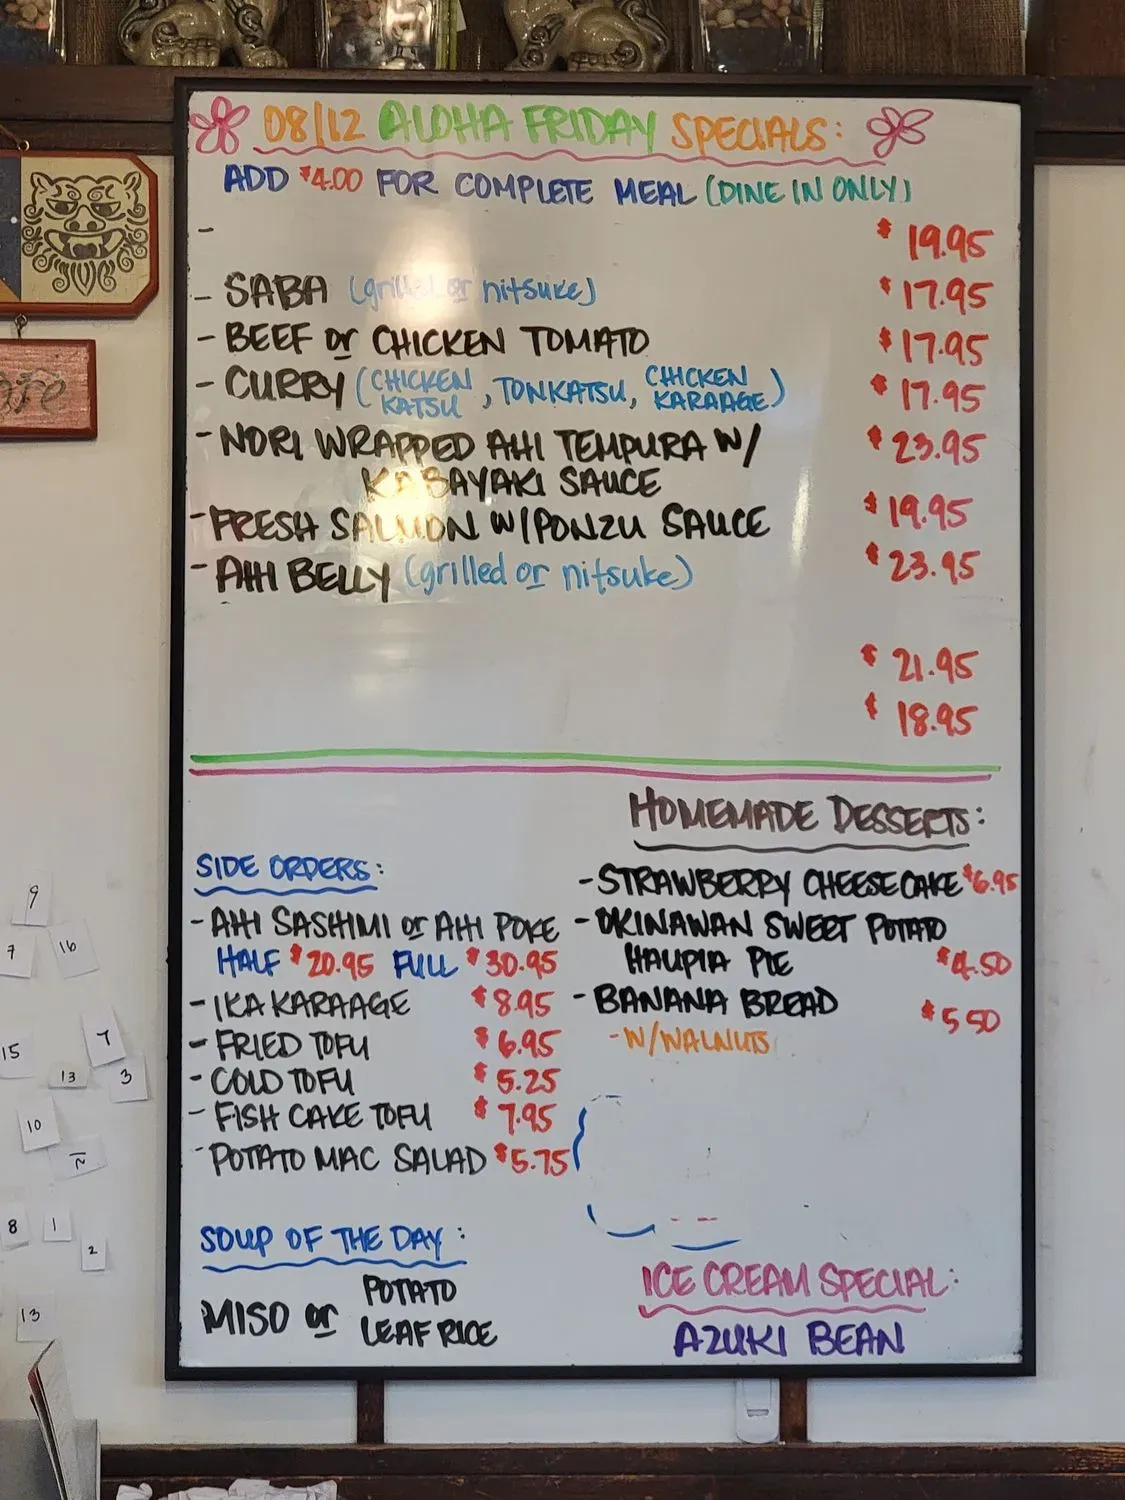 08/12 ALOHA FRIDAY SPECIALS:
ADD $4.00 FOR COMPLETE MEAL (DINE IN ONLY)
- $19.95
- SABA (grilled or nitsuke) $17.95
- BEEF or CHICKEN TOMATO $17.95
- CURRY (CHICKEN KATSU, TONKATSU, CHICKEN KARAAGE) $17.95
- NORI WRAPPED AHI TEMPURA W/ $23.95
KABAYAKI SAUCE
- FRESH SALMON W/PONZU SAUCE $19.95
- AHI BELLY (grilled or nitsuke) $23.95
$21.95
$18.95
SIDE ORDERS:
- AHI SASHIMI or AHI POKE
HALF $20.95 FULL $30.95
- IKA KARAAGE $8.95
- FRIED TOFU $6.95
- COLD TOFU $5.25
- FISH CAKE TOFU $7.95
- POTATO MAC SALAD $5.75
SOUP OF THE DAY:
MISO or POTATO
LEAF RICE
HOMEMADE DESSERTS:
- STRAWBERRY CHEESECAKE $6.95
- OKINAWAN SWEET POTATO
HAUPIA PIE $4.50
- BANANA BREAD $5.50
- W/WALNUTS
ICE CREAM SPECIAL:
AZUKI BEAN
9
7
16
15
7
13
3
10
8
1
2
13